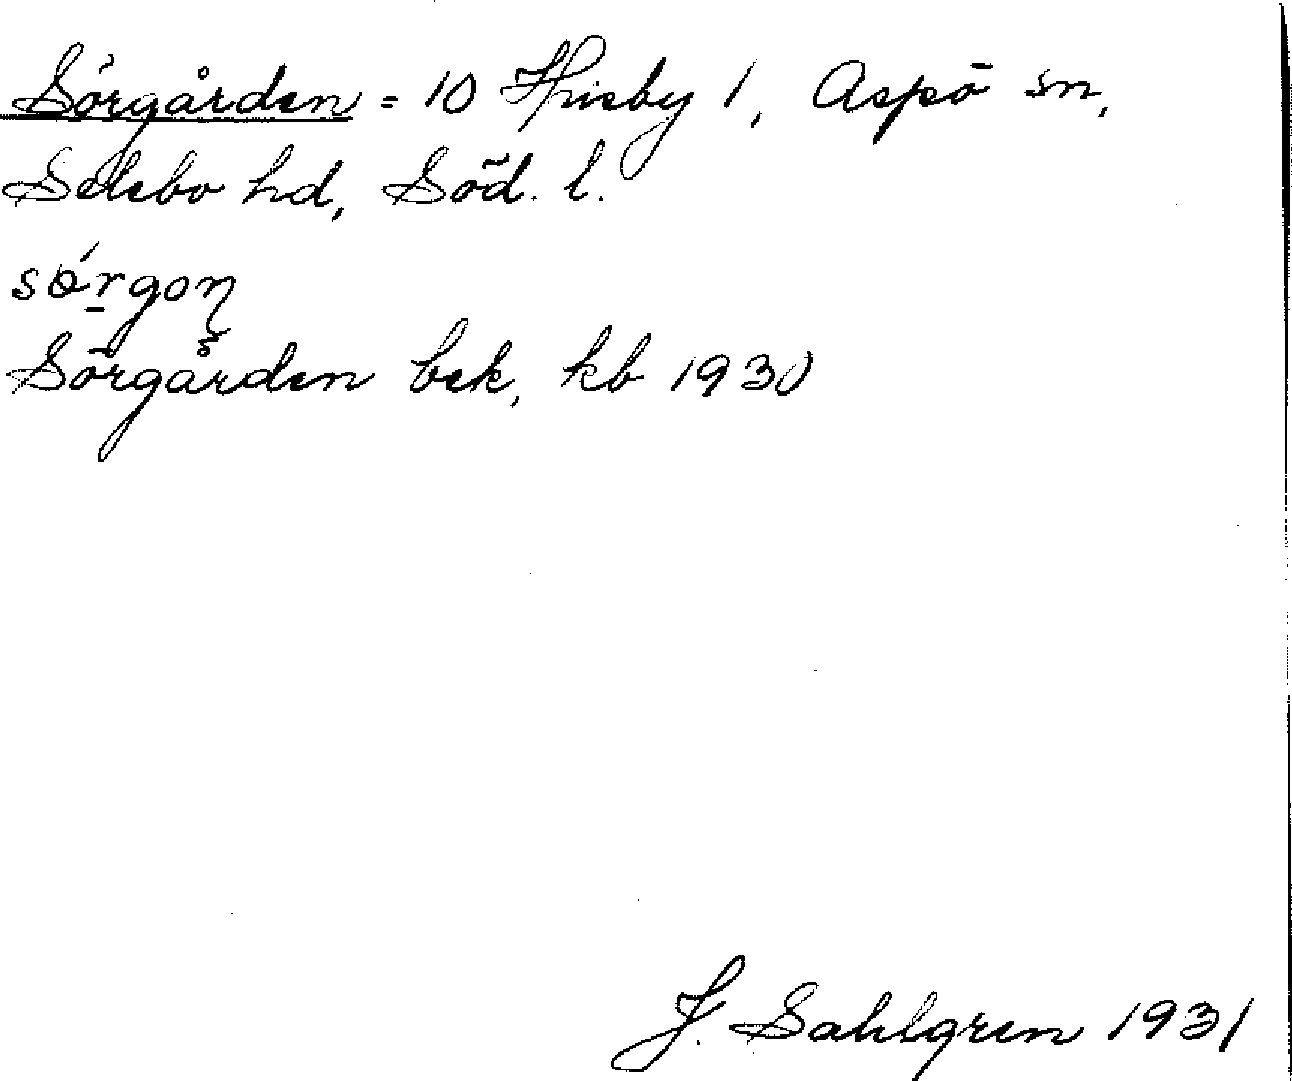 Sörgården = 10 Hisby 1, Aspö sn,
Selebo hd, Söd. l.
sórgoɳ
Sörgården bek, kb 1930
J. Sahlgren 1931